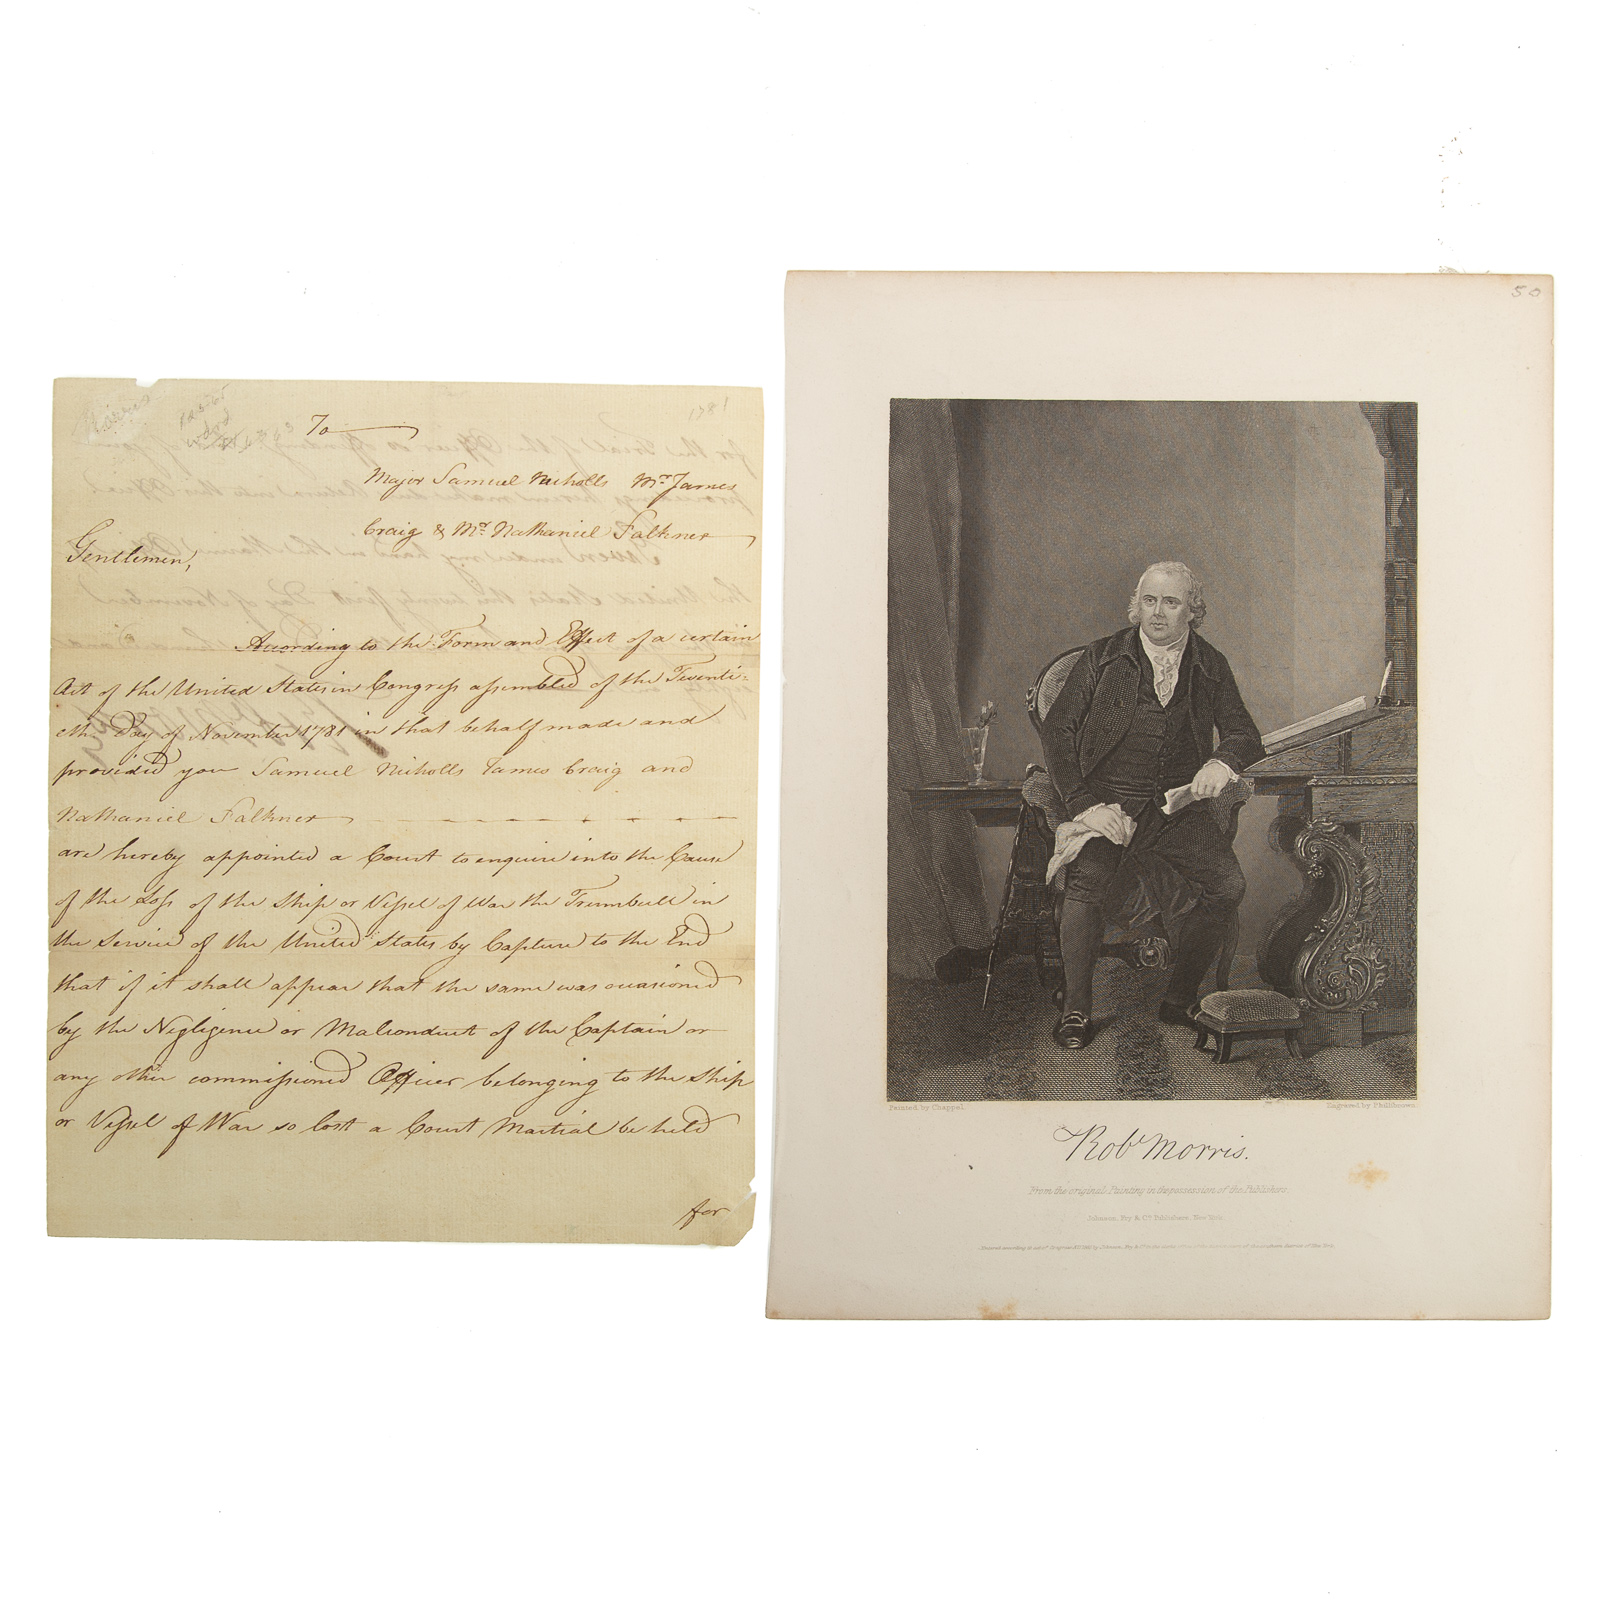 To
Major Samuel Nicholls Mr. James
Craig & Mr. Nathaniel Falkner
Gentlemen,
According to the Form and Effect of a certain
Act of the United States in Congress assembled of the Twenti=
eth Day of November 1781 in that behalf made and
provided you Samuel Nicholls James Craig and
Nathaniel Falkner
are hereby appointed a Court to enquire into the Cause
of the Loss of the Ship or Vessel of War the Trumbull in
the Service of the United States by Capture to the End
that if it shall appear that the same was occasioned
by the Negligence or Malconduct of the Captain or
any other commissioned Officer belonging to the Ship
or Vessel of War so lost a Court Martial be held
for
1781
50
Painted by Chappel
Engraved by
Robt Morris.
From the original Painting in the possession of the Publishers.
Johnson, Fry & Co. Publishers, New York